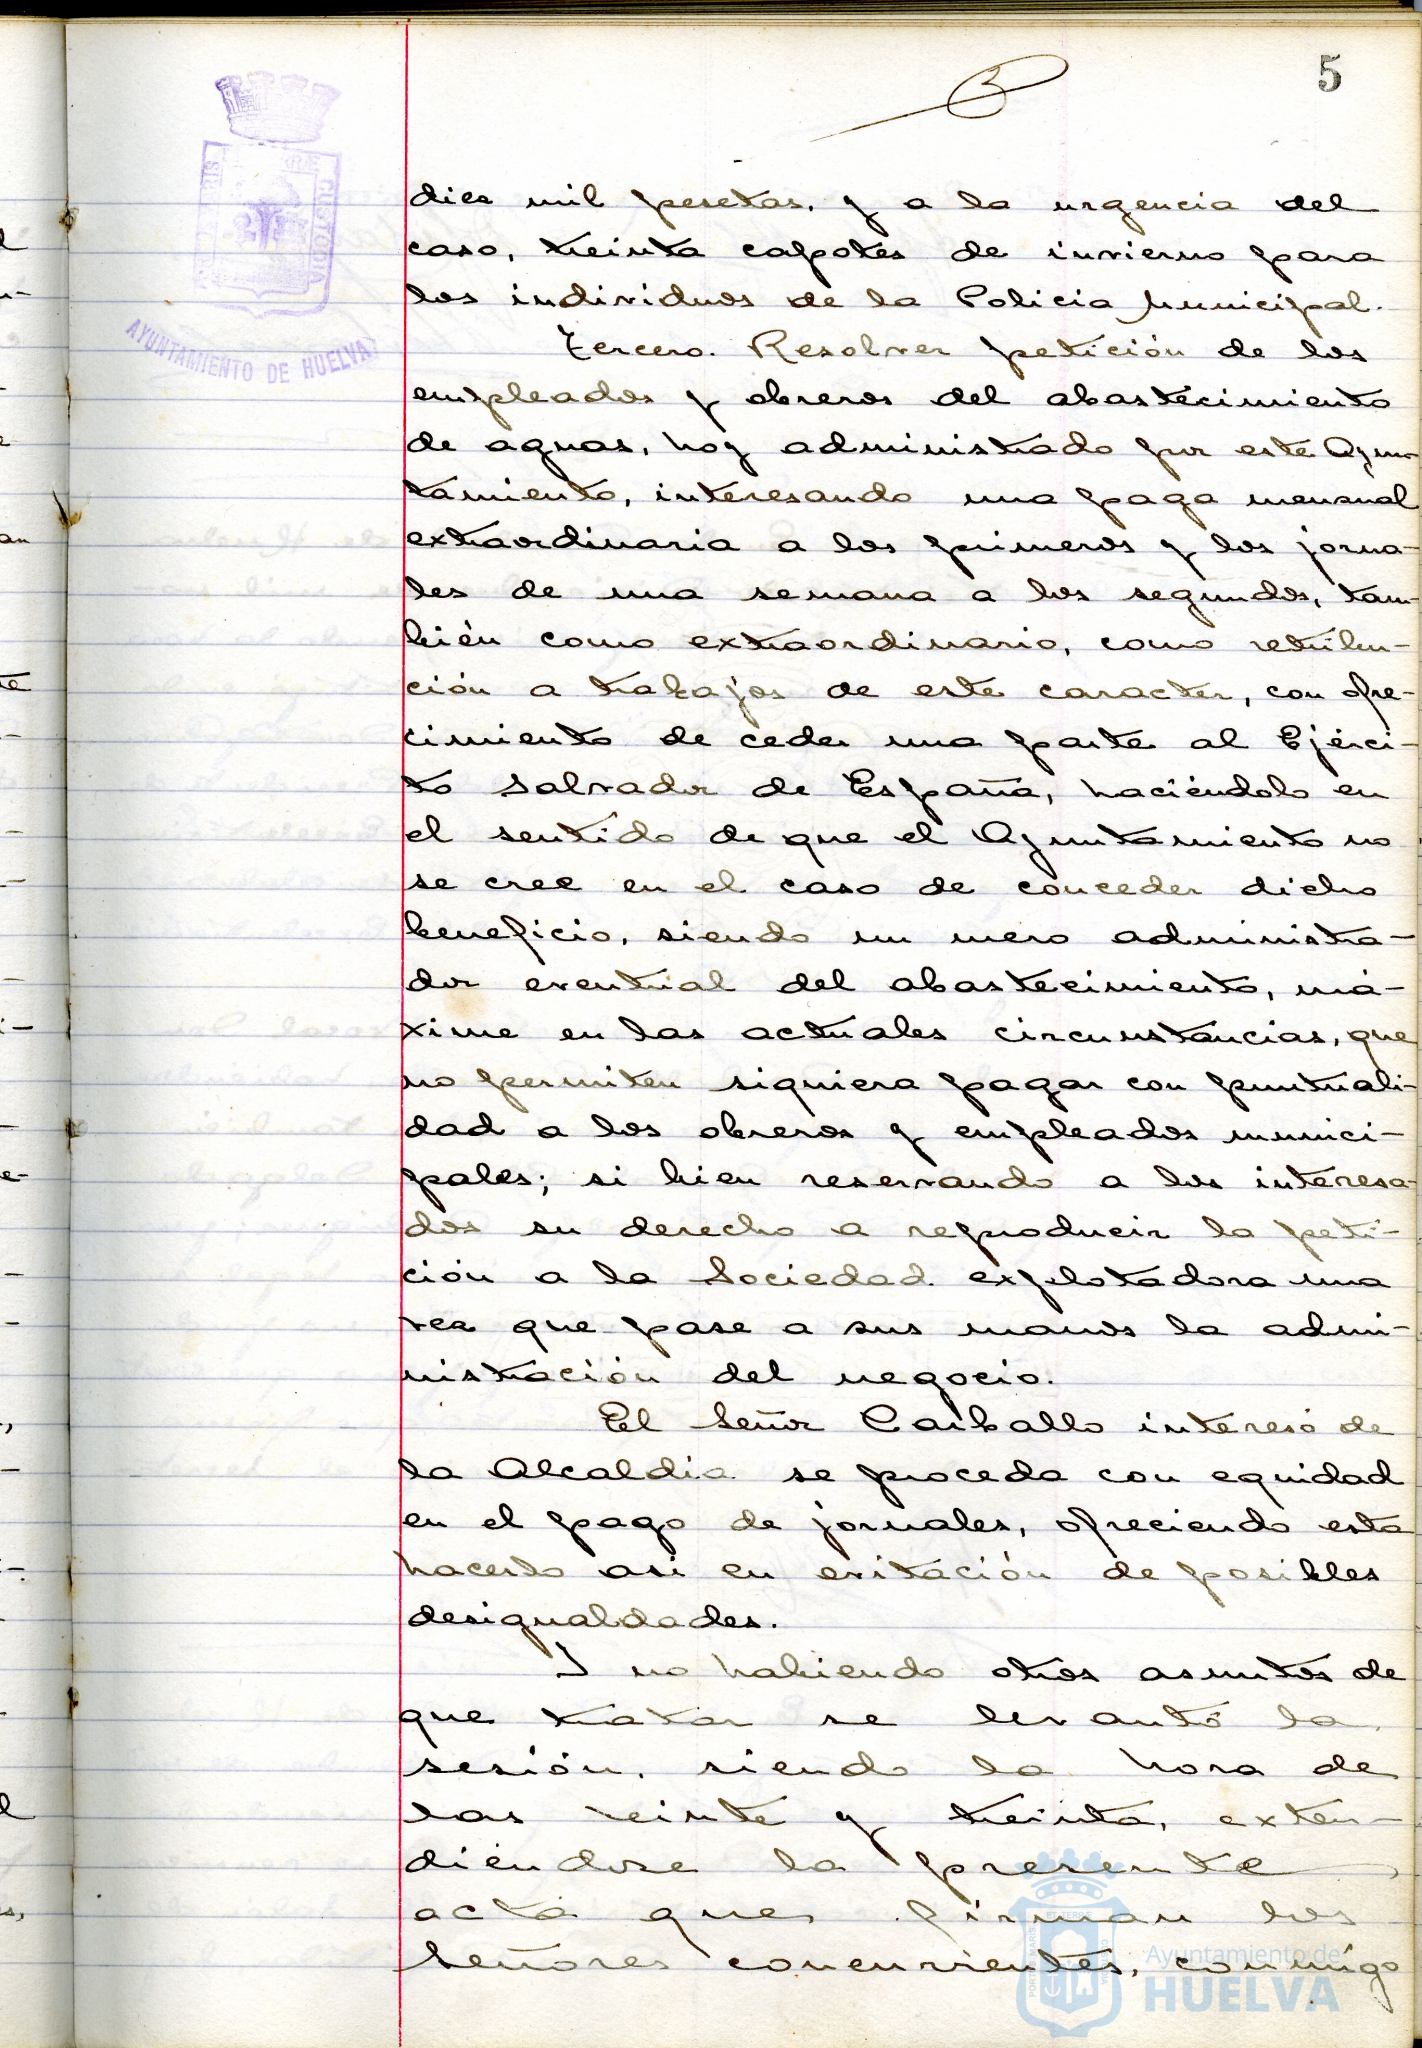 5
diez mil pesetas, y a la urgencia del
caso, treinta capotes de invierno para
los individuos de la Policia Municipal.
Tercero. Resolver petición de los
empleados y obreros del abastecimiento
de aguas, hoy administrado por este Ayun
tamiento, interesando una paga mensual
extraordinaria a los primeros y los jorna-
les de una semana a los segundos, tam-
bién como extraordinario, como retribu-
ción a trabajos de este caracter, con ofre-
cimiento de ceder una parte al Ejérci-
to Salvador de España, haciéndolo en
el sentido de que el Ayuntamiento no
se cree en el caso de conceder dicho
beneficio, siendo un mero administra-
dor eventual del abastecimiento, má-
xime en las actuales circunstancias, que
no permiten siquiera pagar con puntuali-
dad a los obreros y empleados munici-
pales; si bien reservando a los interesa-
dos su derecho a reproducir la peti-
ción a la Sociedad explotadora una
vez que pase a sus manos la admi-
nistración del negocio.
El Señor Carballo interesó de
la Alcaldia se proceda con equidad
en el pago de jornales, ofreciendo esta
hacerlo asi en evitación de posibles
desigualdades.
Y no habiendo otros asuntos de
que tratar se levantó la
sesión, siendo la hora de
las veinte y treinta, exten-
diéndose la presente
acta que firman los
Señores concurrientes, conmigo
AYUNTAMIENTO DE HUELVA
CUSTODIA
Ayuntamiento de
HUELVA